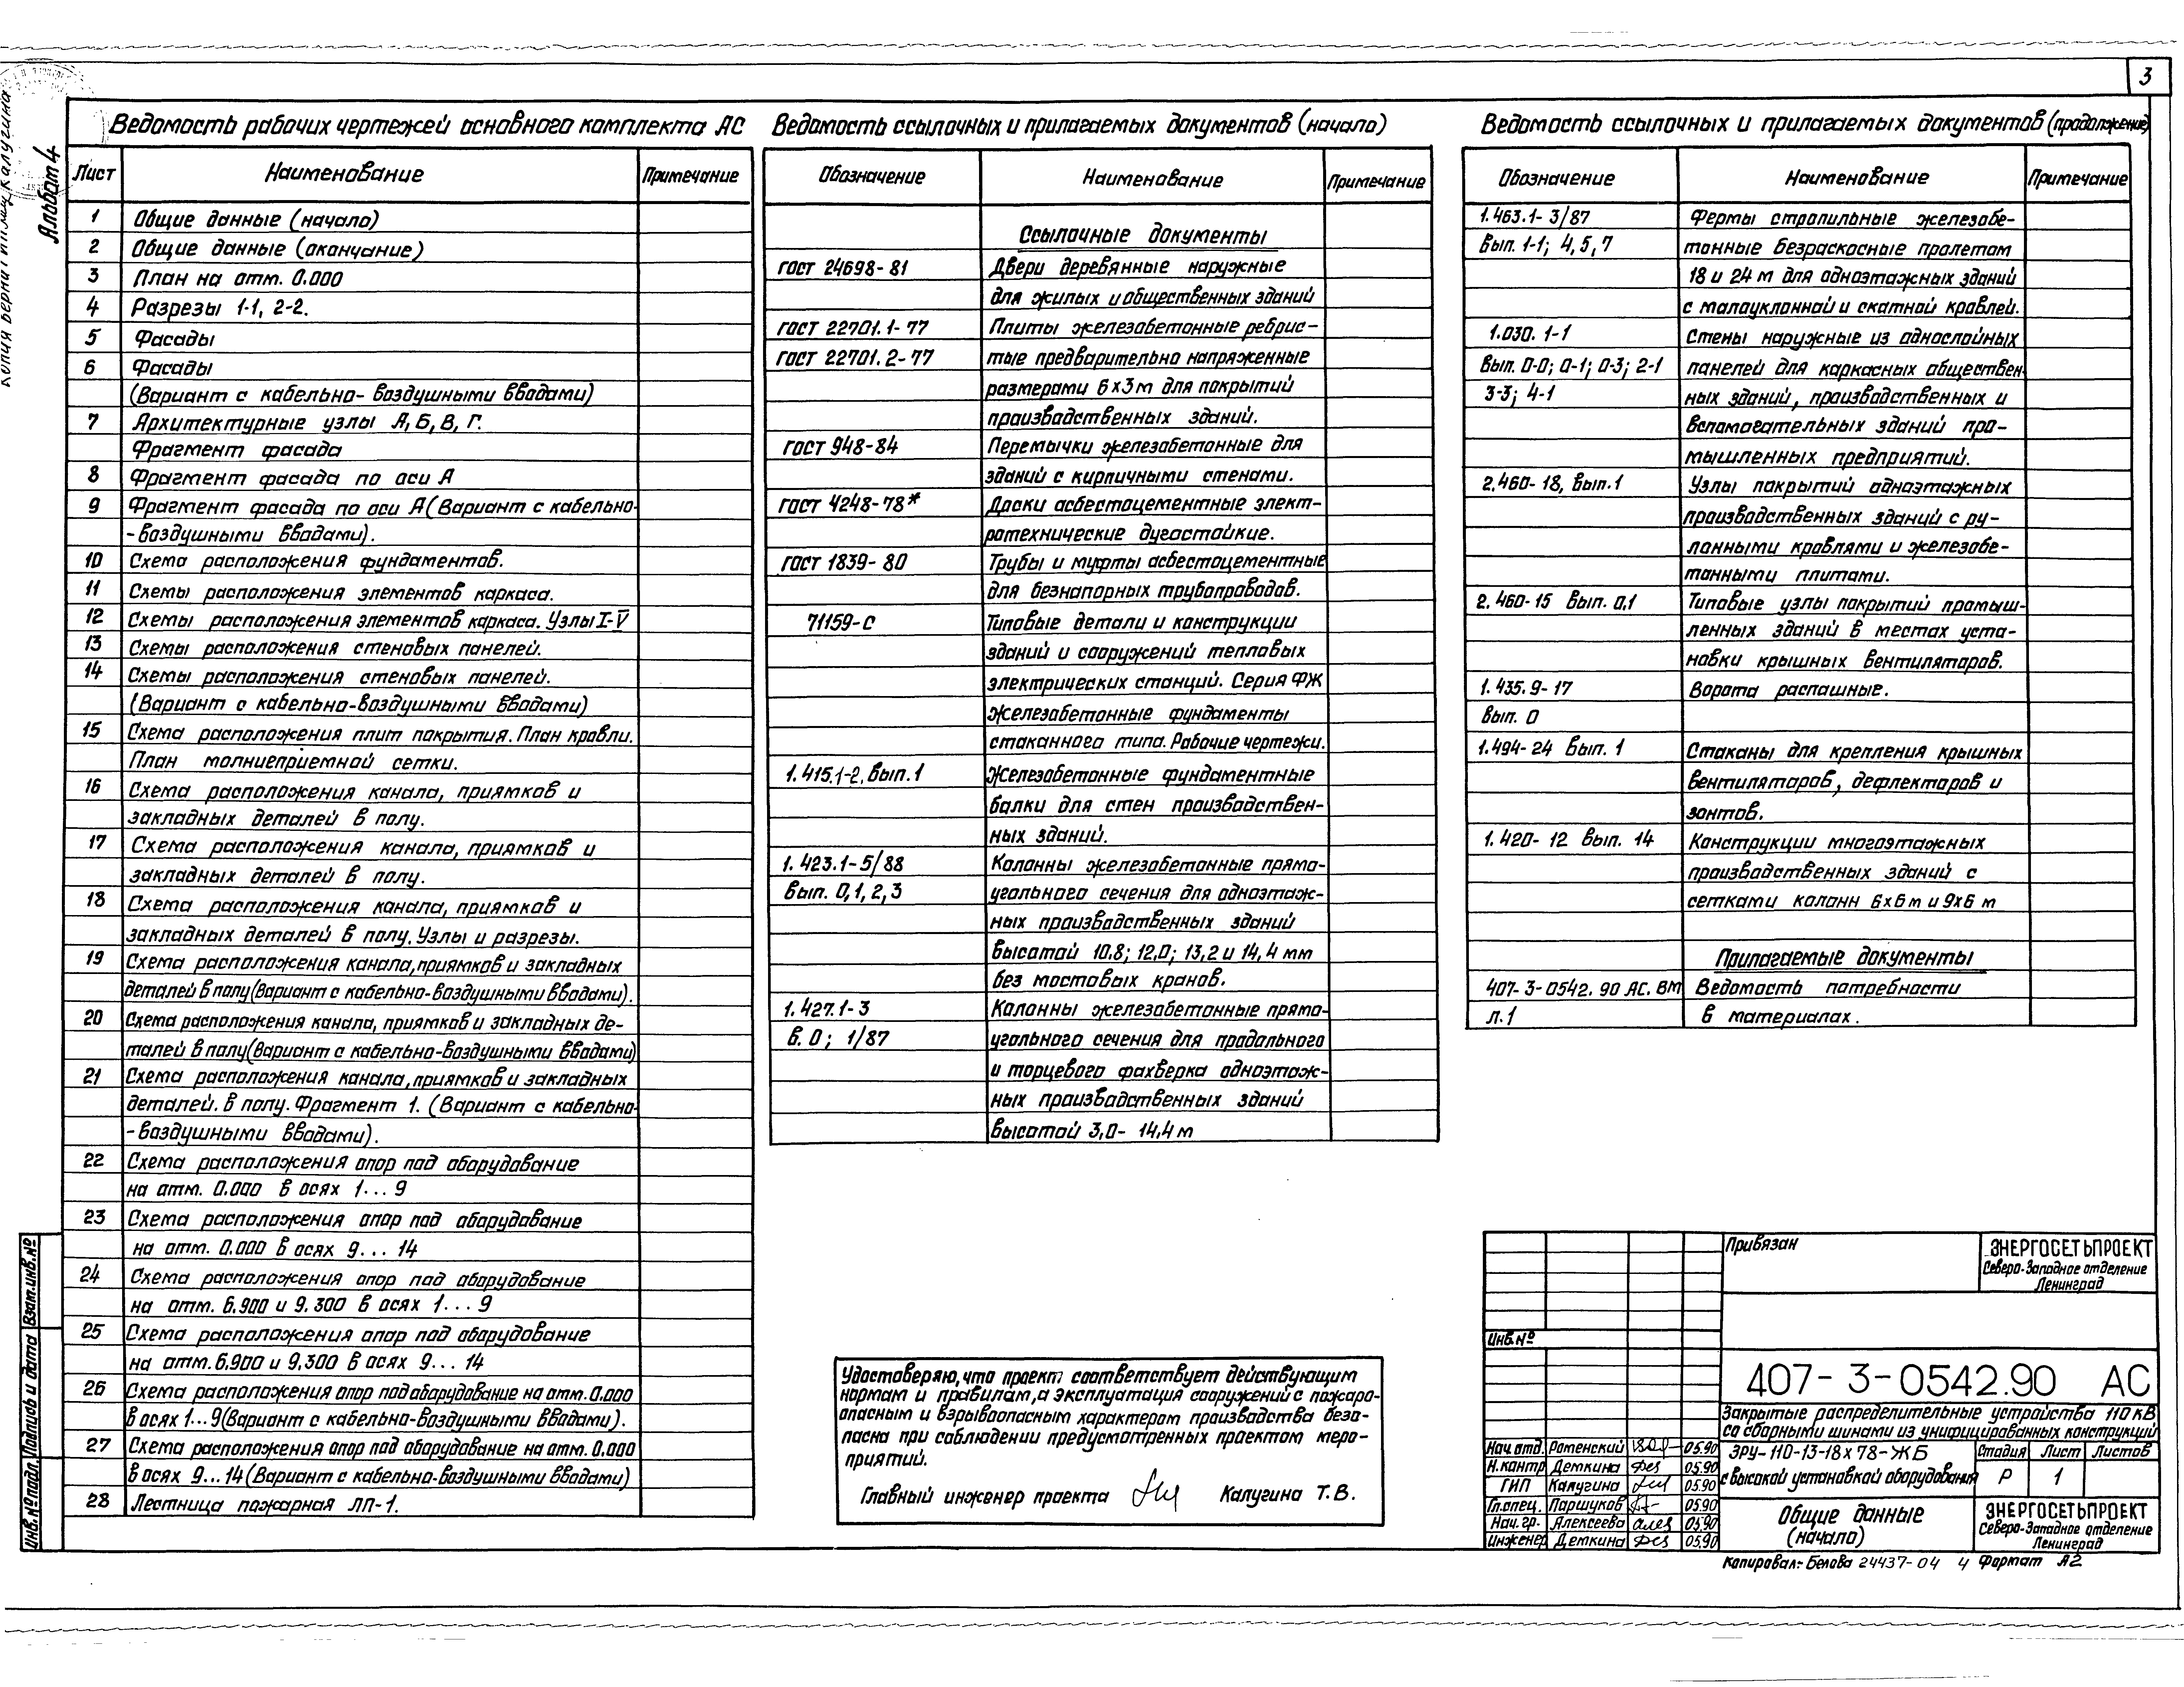 3
Альбом 4
Ведомость рабочих чертежей основного комплекта АС
Лист Наименование Примечание
1 Общие данные (начало)
2 Общие данные (окончание)
3 План на отм. 0.000
4 Разрезы 1-1, 2-2.
5 Фасады
6 Фасады
(Вариант с кабельно-воздушными вводами)
7 Архитектурные узлы А, Б, В, Г.
Фрагмент фасада
8 Фрагмент фасада по оси А
9 Фрагмент фасада по оси А (Вариант с кабельно-
-воздушными вводами).
10 Схема расположения фундаментов.
11 Схемы расположения элементов каркаса.
12 Схемы расположения элементов каркаса. Узлы I-V
13 Схемы расположения стеновых панелей.
14 Схемы расположения стеновых панелей.
(Вариант с кабельно-воздушными вводами)
15 Схема расположения плит покрытия. План кровли.
План молниеприемной сетки.
16 Схема расположения канала, приямков и
закладных деталей в полу.
17 Схема расположения канала, приямков и
закладных деталей в полу.
18 Схема расположения канала, приямков и
закладных деталей в полу. Узлы и разрезы.
19 Схема расположения канала, приямков и закладных
деталей в полу (Вариант с кабельно-воздушными вводами).
20 Схема расположения канала, приямков и закладных де-
талей в полу (Вариант с кабельно-воздушными вводами)
21 Схема расположения канала, приямков и закладных
деталей. в полу. Фрагмент 1. (Вариант с кабельно-
-воздушными вводами).
22 Схема расположения опор под оборудование
на отм. 0.000 в осях 1...9
23 Схема расположения опор под оборудование
на отм. 0.000 в осях 9...14
24 Схема расположения опор под оборудование
на отм. 6.900 и 9.300 в осях 1...9
25 Схема расположения опор под оборудование
на отм. 6.900 и 9,300 в осях 9...14
26 Схема расположения опор под оборудование на отм. 0.000
в осях 1...9 (Вариант с кабельно-воздушными вводами).
27 Схема расположения опор под оборудование на отм. 0.000
в осях 9...14 (Вариант с кабельно-воздушными вводами)
28 Лестница пожарная ЛП-1.
Ведомость ссылочных и прилагаемых документов (начало)
Обозначение Наименование Примечание
Ссылочные документы
ГОСТ 24698-81 Двери деревянные наружные
для жилых и общественных зданий
ГОСТ 22701.1-77 Плиты железобетонные ребрис-
ГОСТ 22701.2-77 тые предварительно напряженные
размерами 6х3м для покрытий
производственных зданий.
ГОСТ 948-84 Перемычки железобетонные для
зданий с кирпичными стенами.
ГОСТ 4248-78* Доски асбестоцементные элект-
ротехнические дугостойкие.
ГОСТ 1839-80 Трубы и муфты асбестоцементные
для безнапорных трубопроводов.
71159-С Типовые детали и конструкции
зданий и сооружений тепловых
электрических станций. Серия ФЖ
Железобетонные фундаменты
стаканного типа. Рабочие чертежи.
1.415.1-2. Вып. 1 Железобетонные фундаментные
балки для стен производствен-
ных зданий.
1.423.1-5/88 Колонны железобетонные прямо-
Вып. 0,1,2,3 угольного сечения для одноэтаж-
ных производственных зданий
высотой 10.8; 12,0; 13,2 и 14,4 мм
без мостовых кранов.
1.427.1-3 Колонны железобетонные прямо-
в. 0; 1/87 угольного сечения для продольного
и торцевого фахверка одноэтаж-
ных производственных зданий
высотой 3,0-14,4 м
Ведомость ссылочных и прилагаемых документов (продолжение)
Обозначение Наименование Примечание
1.463.1-3/87 Фермы стропильные железобе-
Вып. 1-1; 4,5,7 тонные безраскосные пролетом
18 и 24 м для одноэтажных зданий
с малоуклонной и скатной кровлей.
1.030.1-1 Стены наружные из однослойных
Вып. 0-0; 0-1; 0-3; 2-1 панелей для каркасных обществен
3-3; 4-1 ных зданий, производственных и
вспомогательных зданий про-
мышленных предприятий.
2.460-18, вып. 1 Узлы покрытий одноэтажных
производственных зданий с ру-
лонными кровлями и железобе-
тонными плитами.
2.460-15 вып. 0,1 Типовые узлы покрытий промыш-
ленных зданий в местах уста-
новки крышных вентиляторов.
1.435.9-17 Ворота распашные.
Вып. 0
1.494-24 вып. 1 Стаканы для крепления крышных
вентиляторов, дефлекторов и
зонтов.
1.420-12 вып. 14 Конструкции многоэтажных
производственных зданий с
сетками колонн 6х6м и 9х6 м
Прилагаемые документы
407-3-0542.90 АС.ВМ Ведомость потребности
л.1 в материалах.
Удостоверяю, что проект соответствует действующим
нормам и правилам, а эксплуатация сооружений с пожаро-
опасным и взрывоопасным характером производства безо-
пасна при соблюдении предусмотренных проектом меро-
приятий.
Главный инженер проекта Калугина Т.В.
Привязан
ЭНЕРГОСЕТЬПРОЕКТ
Северо-Западное отделение
Ленинград
Инв.№
407-3-0542.90 АС
Закрытые распределительные устройства 110 кВ
со сборными шинами из унифицированных конструкций
Нач. отд. Роменский 05.90
Н.контр Демкина 05.90
ГИП Калугина 05.90
Гл.спец. Паршуков 05.90
Нач. гр. Алексеева 05.90
Инженер Демкина 05.90
ЗРУ-110-13-18х78-ЖБ
с высокой установкой оборудования
Стадия Лист Листов
Р 1
Общие данные
(начало)
ЭНЕРГОСЕТЬПРОЕКТ
Северо-Западное отделение
Ленинград
Копировал:- Белова 24437-04 4 Формат А2
Взам.инв.№
Подпись и дата
Инв.№ подл.